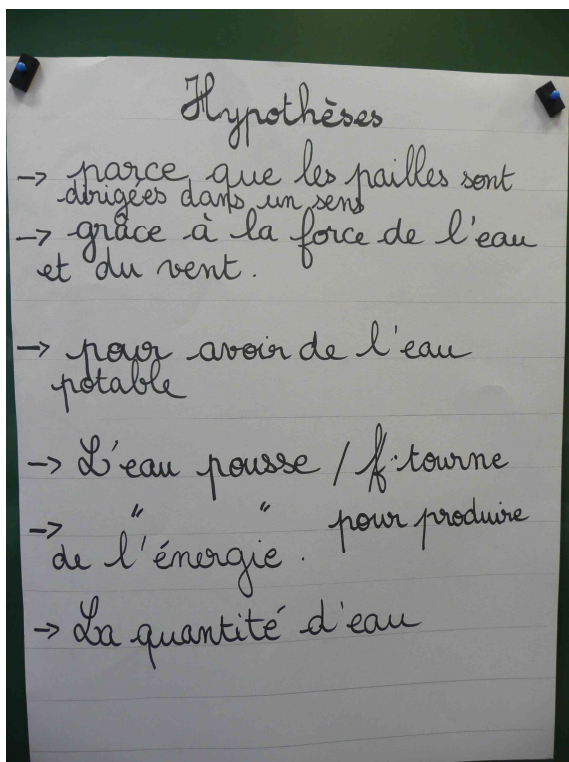 Hypothèses
→ parce que les pailles sont
dirigées dans un sens
→ grâce à la force de l'eau
et du vent.
→ pour avoir de l'eau
potable
→ L'eau pousse / f. tourne
→ " " pour produire
de l'énergie.
→ La quantité d'eau